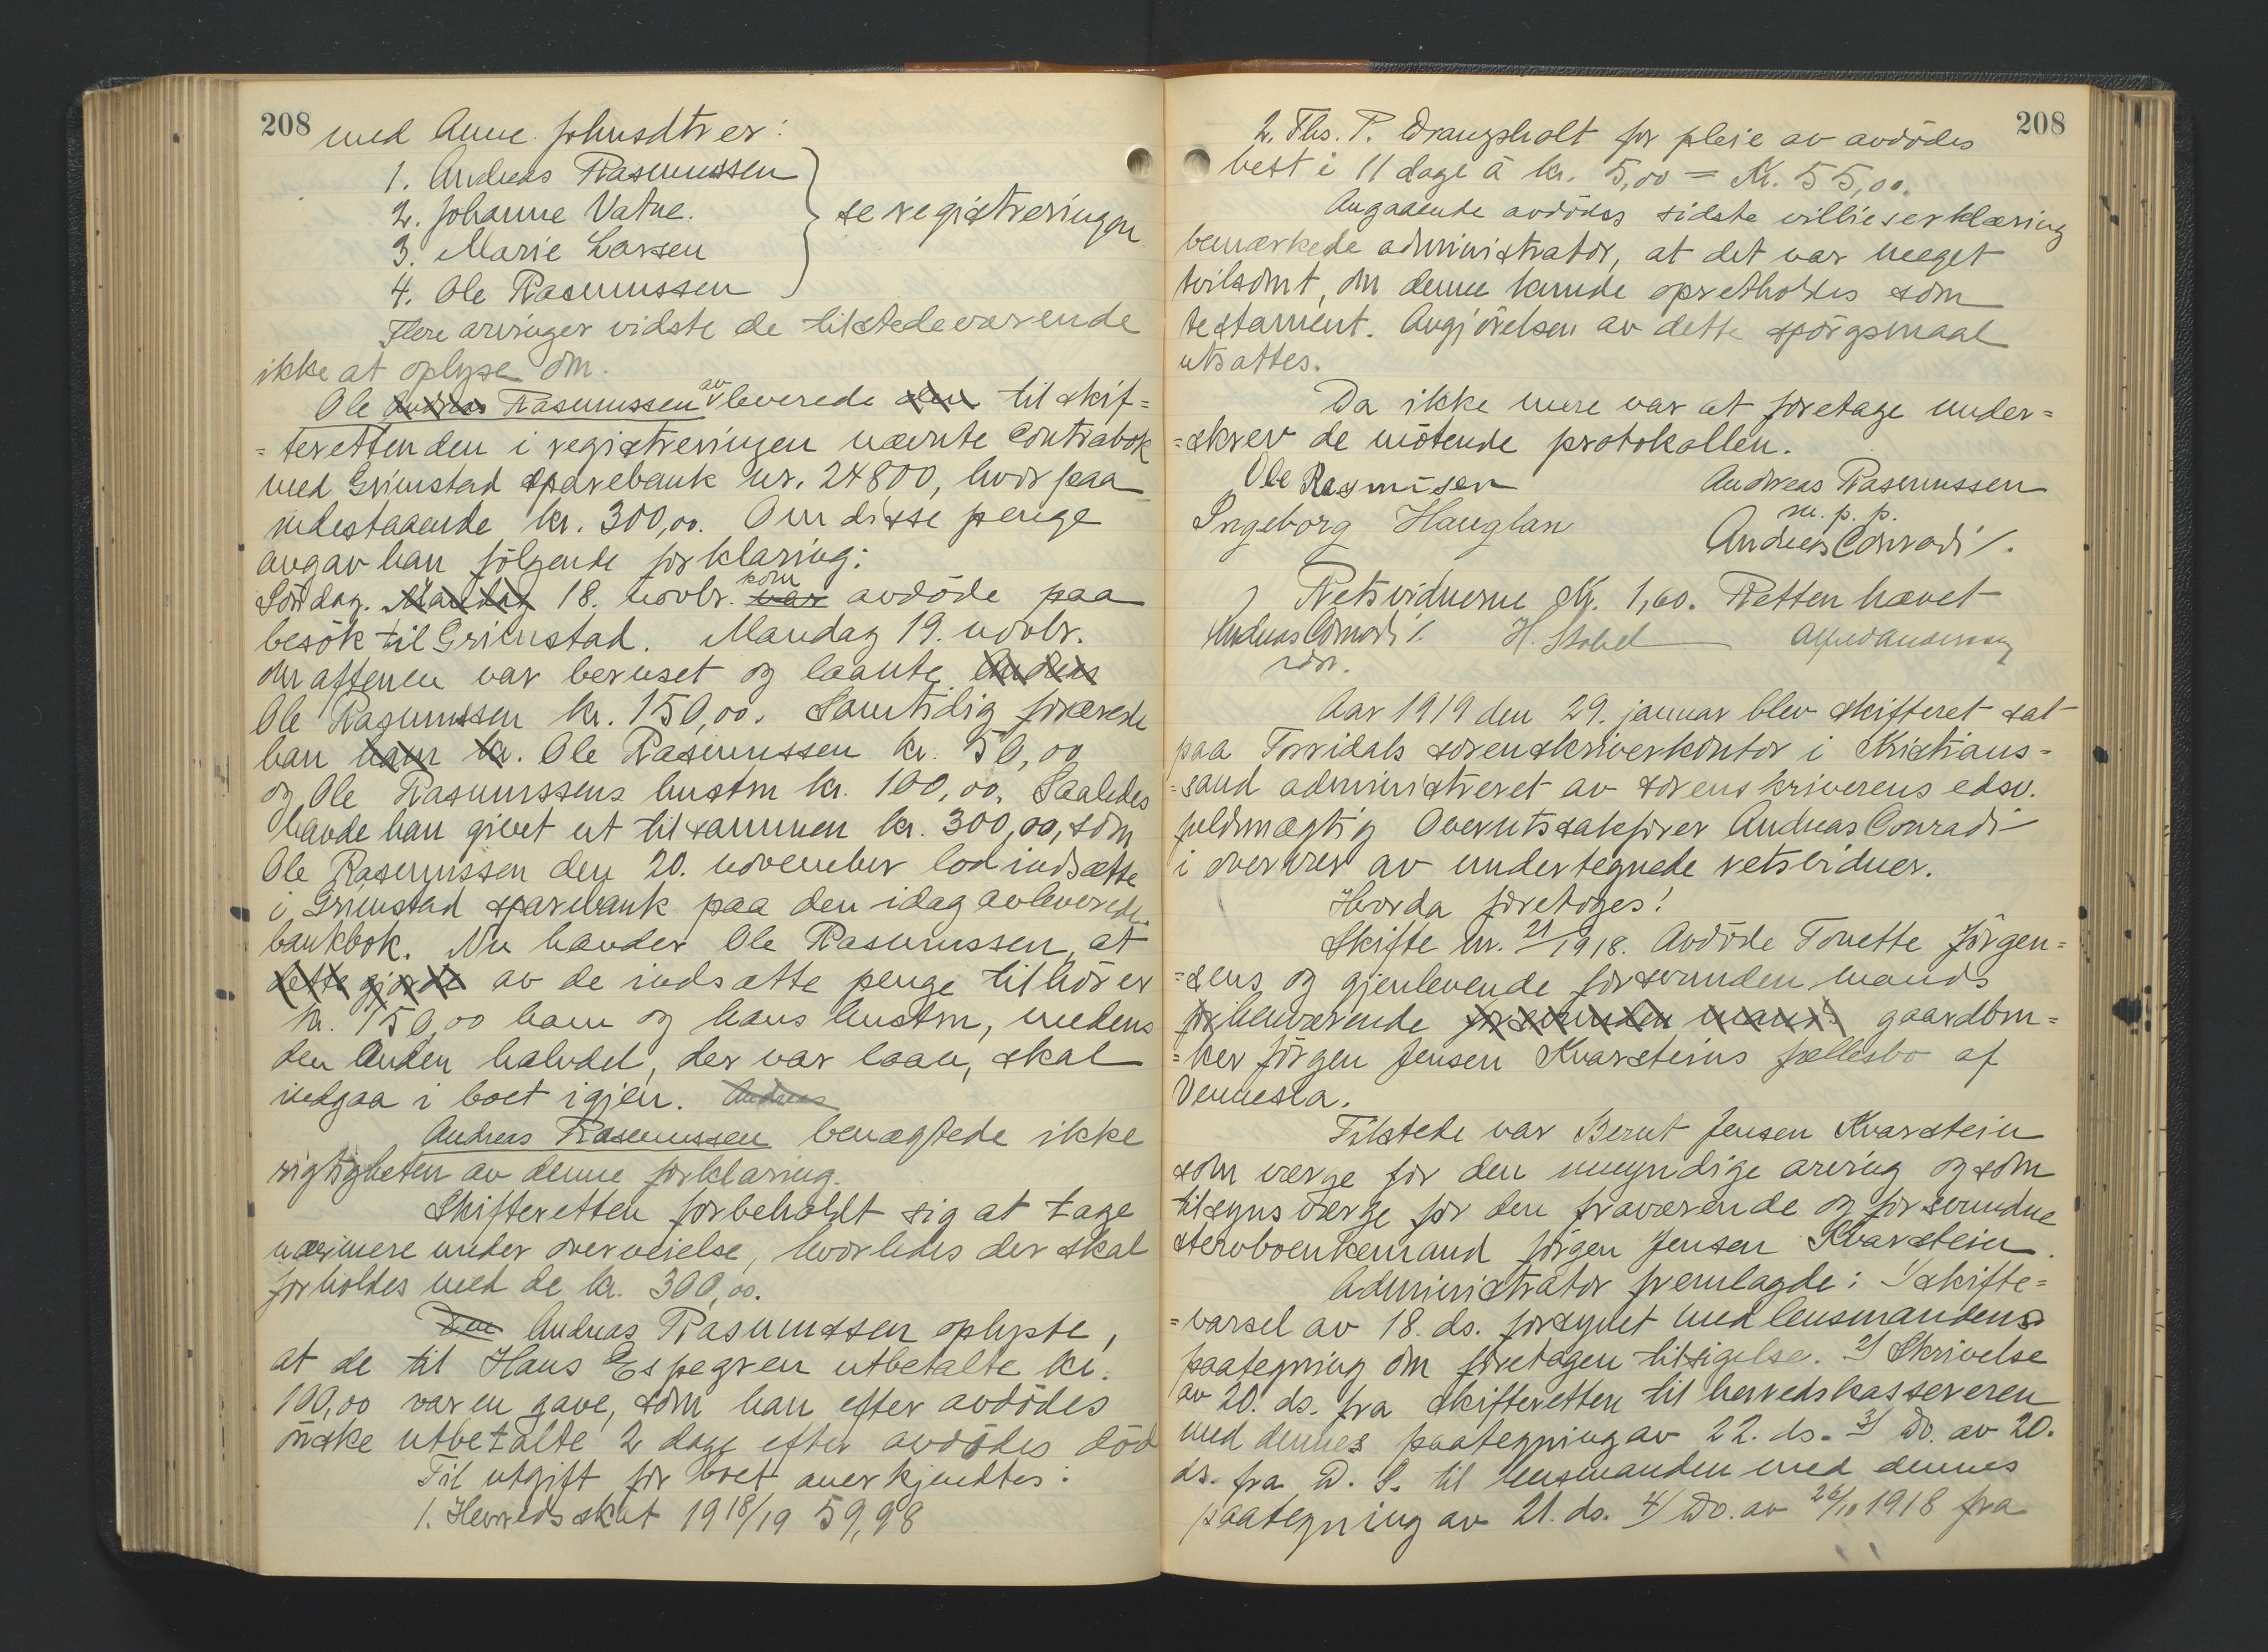 208
med Anne Johnsdtr er:
1. Andreas Rasmussen
2. Johanne Vatne.
3. Marie Larsen
4. Ole Rasmussen
se registreringen
Flere arvinger vidste de tilstedeværende
ikke at oplyse om.
Ole Andreas Rasmussen avleverede den til skif=
=teretten den i registreringen nævnte Contrabok
med Grimstad Sparebank nr. 24800, hvor paa
indestaaende kr. 300,00. Om disse penge
avgav han följende forklaring:
Söndag. Mandag 18. novbr. var kom avdöde paa
besök til Grimstad. Mandag 19. novbr.
om aftenen var beruset og laante Andreas
Ole Rasmussen kr. 150,00. Samtidig forærede
han ham kr. Ole Rasmussen kr. 50,00
og Ole Rasmussens hustru kr. 100,00. Saaledes
havde han givet ut tilsammen kr. 300,00, som
Ole Rasmussen den 20. november lod indsætte
i Grimstad sparebank paa den idag avleverede
bankbok. Nu hævder Ole Rasmussen, at
dette gjorde av de indsatte penge tilhörer
kr. 150,00 ham og hans hustru, medens
den anden halvdel, der var laan, skal
indgaa i boet igjen. Andreas
Andreas Rasmussen benægtede ikke
rigtigheten av denne forklaring.
Skifteretten forbeholdt sig at tage
nærmere under overveielse, hvorledes der skal
forholdes med de kr. 300,00.
Den Andreas Rasmussen oplyste,
at de til Hans Espegren utbetalte kr.
100,00 var en gave, som han efter avdödes
önske utbetalte 2 dage efter avdödes död
Til utgift for boet anerkjendtes:
1. Herredsskat 1918/19 59,98
208
2. Ths. P. Drangsholt for pleie av avdödes
hest i 11 dage à kr. 5,00 = Kr. 55,00.
Angaaende avdödes sidste villieserklæring
bemerkede administrator, at det var meget
tvilsomt, om denne kunde opretholdes som
testament. Avgjörelsen av dette spörgsmaal
utsattes.
Da ikke mere var at foretage under=
=skrev de mötende protokollen.
Ole Rasmusen Andreas Rasmussen
m. p. p.
Ingeborg Hauglan Andreas Conradi /.
Retsvidnerne Kr. 1,60. Retten hævet
Andreas Conradi /. H. Stobel Alfred Andersen
Aar 1919 den 29. januar blev skifteret sat
paa Torridals sorenskriverkontor i Kristians=
=sand administreret av sorenskriverens edsv.
fuldmægtig Overretssakförer Andreas Conradi
i overvær av undertegnede retsvidner.
Hvorda foretoges:
Skifte nr. 21/1918. Avdöde Tonette Jörgen=
=sens og gjenlevende forsvunden mands
forhenværende forsvunden mands gaardbru=
=ker Jörgen Jensen Kvarsteins fællesbo af
Vennesla.
Tilstede var Bernt Jensen Kvarstein
som værge for den umyndige arving og som
tilsynsværge for den fraværende og forsvundne
stervboenkemand Jörgen Jensen Kvarstein.
Administrator fremlagde: 1/ skifte=
=varsel av 18. ds. forsynet med lensmandens
paategning om foretagen tilsigelse. 2/ Skrivelse
av 20. ds. fra skifteretten til herredskassereren
med dennes paategning av 22. ds. 3/ Do. av 20.
ds. fra D. S. til lensmanden med dennes
paategning av 21. ds. 4/ Do. av 26/10 1918 fra